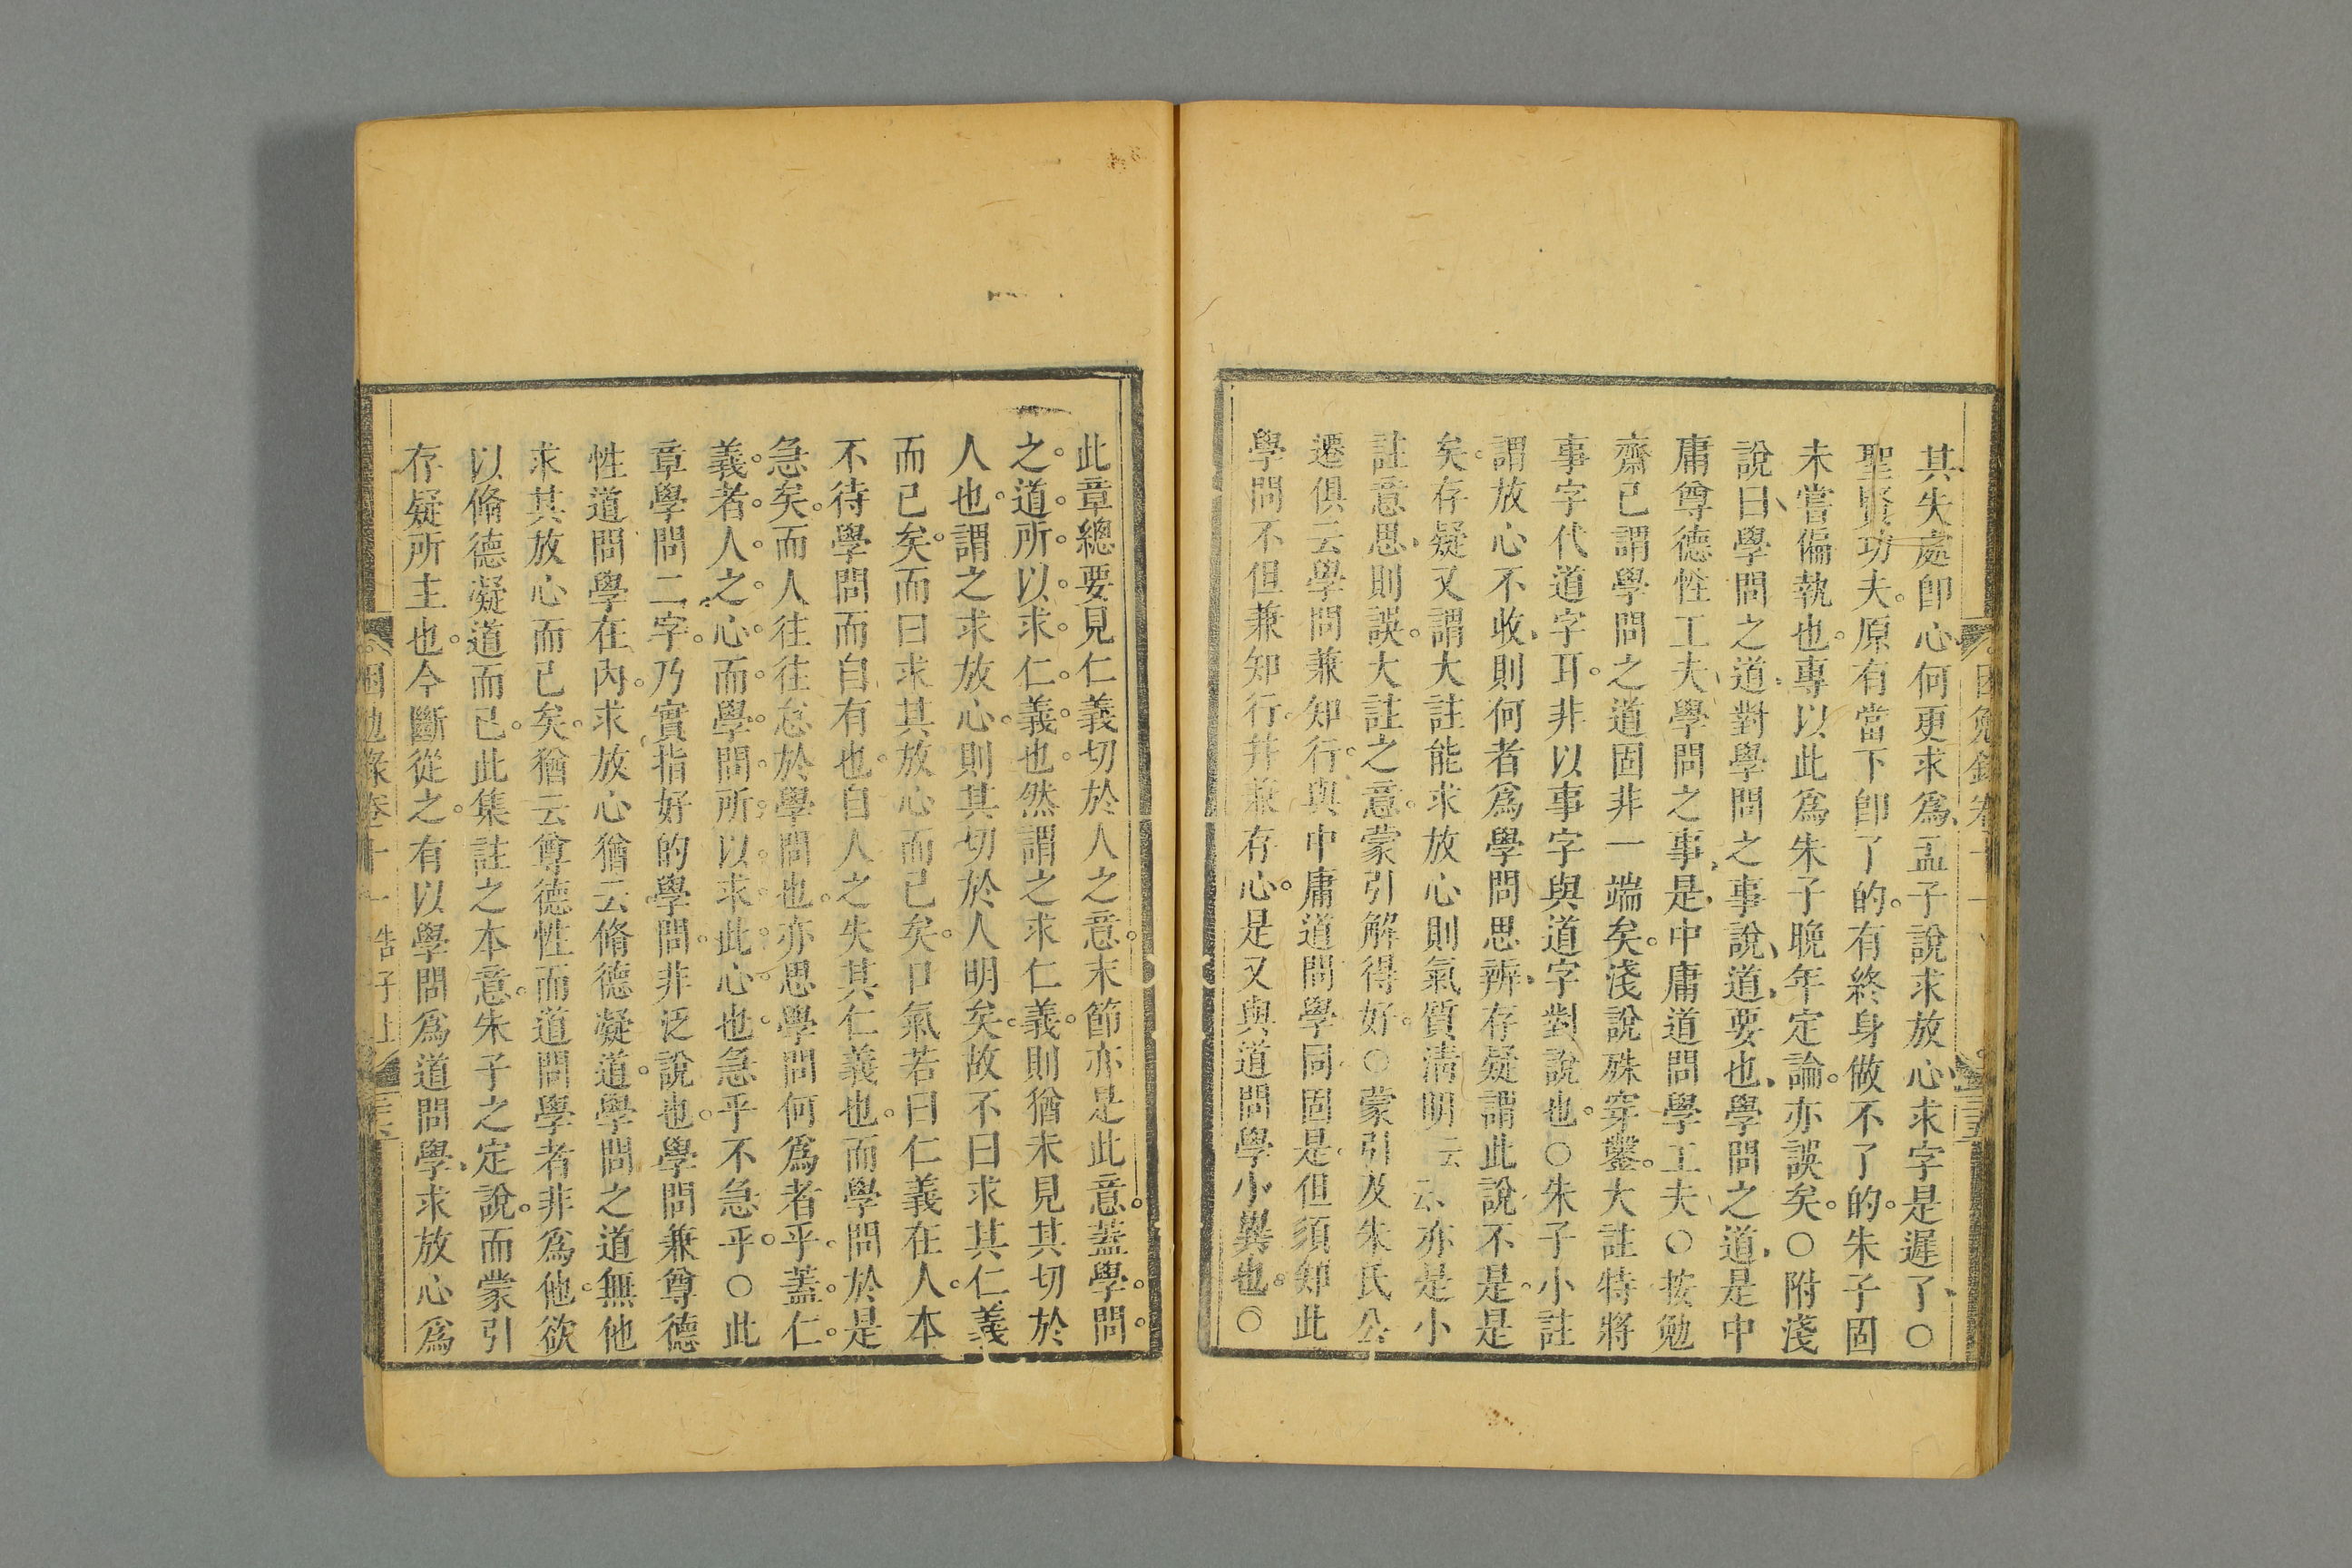 其失處卽心何更求爲孟子說求放心求字是遲了○
聖賢功夫原有當下卽了的有終身做不了的朱子固
未嘗偏執也專以此爲朱子晚年定論亦誤矣○附淺
說曰學問之道對學問之事說道要也學問之道是中
庸尊德性工夫學問之事是中庸道問學工夫○按勉
齋已謂學問之道固非一端矣淺說殊穿鑿大註特將
事字代道字耳非以事字與道字對說也○朱子小註
謂放心不收則何者爲學問思辨存疑謂此說不是是
矣存疑又謂大註能求放心則氣質淸明云云亦是小
註意思則誤大註之意蒙引解得好○蒙引及朱氏公
遷俱云學問兼知行與中庸道問學同固是但須知此
學問不但兼知行幷兼存心是又與道問學小異也○
此章總要見仁義切於人之意末節亦是此意蓋學問
之道所以求仁義也然謂之求仁義則猶未見其切於
人也謂之求放心則其切於人明矣故不曰求其仁義
而已矣而曰求其放心而已矣口氣若曰仁義在人本
不待學問而自有也自人之失其仁義也而學問於是
急矣而人往往怠於學問也亦思學問何爲者乎蓋仁
義者人之心而學問所以求此心也急乎不急乎○此
章學問二字乃實指好的學問非泛說也學問兼尊德
性道問學在內求放心猶云脩德凝道學問之道無他
求其放心而已矣猶云尊德性而道問學者非爲他欲
以脩德凝道而已此集註之本意朱子之定說而蒙引
存疑所主也今斷從之有以學問爲道問學求放心爲
困勉錄卷十一 告子上